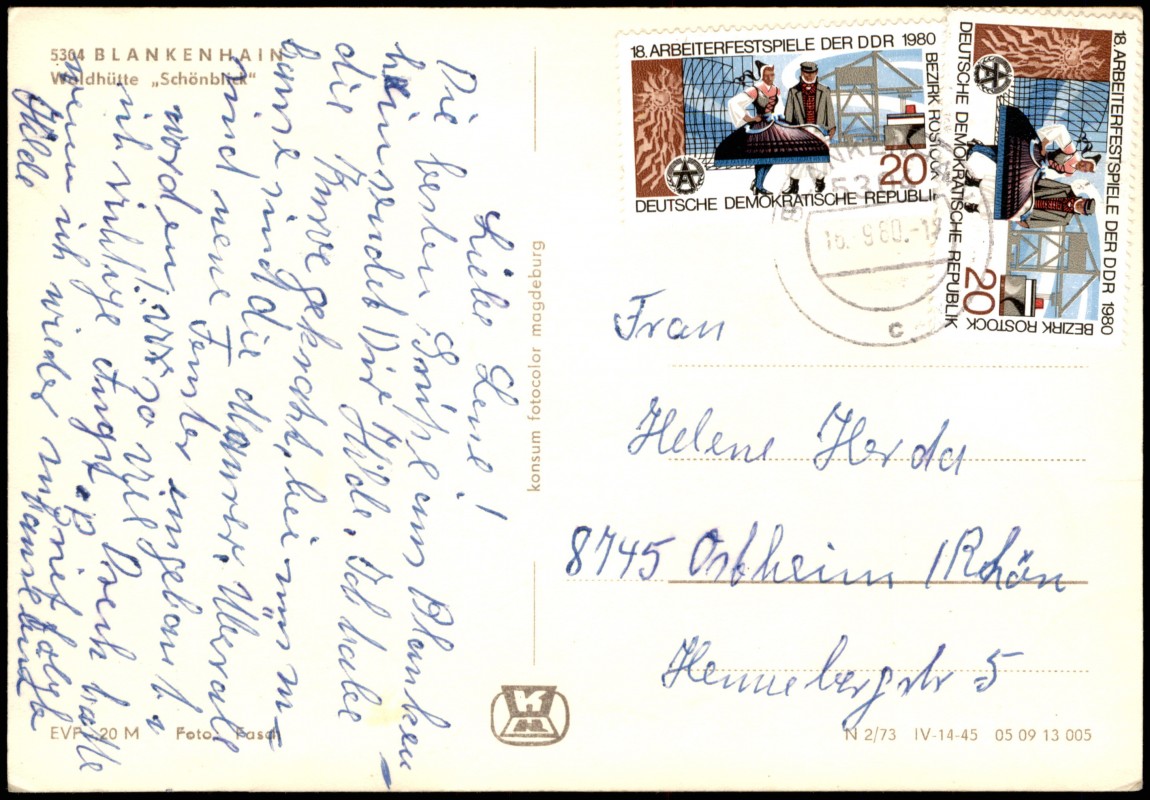 5304 BLANKENHAIN
Waldhütte „Schönblick“
Liebe Lene!
Die besten Grüße aus Blanken-
hain sendet Dir Hilde. Ich habe
die Kurve gekratzt, bei uns zu-
hause sind die Maurer. Überall
sind neue Fenster eingebaut
worden, so viel
ich richtige Angst Doch hatte
wenn ich wieder
Hilde
EVP -20 M Foto: Fasch
konsum fotocolor magdeburg
18. ARBEITERFESTSPIELE DER DDR 1980
BEZIRK ROSTOCK
20
DEUTSCHE DEMOKRATISCHE REPUBLIK
18. ARBEITERFESTSPIELE DER DDR 1980
BEZIRK ROSTOCK
20
DEUTSCHE DEMOKRATISCHE REPUBLIK
16.-9.80.-1
c
Frau
Helene Herda
8745 Ostheim / Rhön
Hennebergstr 5
N 2/73 IV-14-45 05 09 13 005